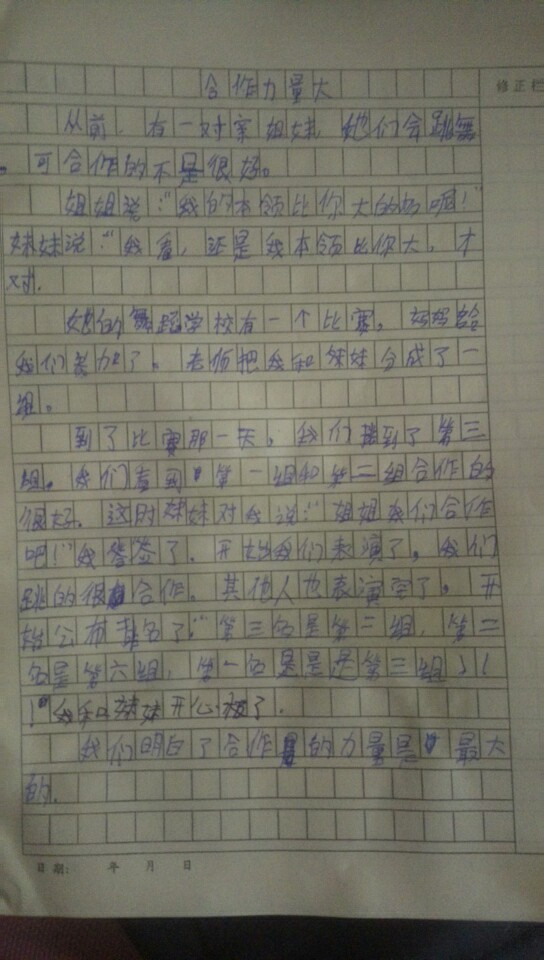 合作力量大
修正栏
从前，有一对亲姐妹，她们会跳舞
。可合作的不是很好。
姐姐说："我的本领比你大的多呢！"
妹妹说："我看，还是我本领比你大，才
对．
她的舞蹈学校有一个比赛，妈妈给
我们参加了。老师把我和妹妹分成了一
组。
到了比赛那一天。我们排到了第三
组。我们看到第一组和第二组合作的
很好。这时妹妹对我说："姐姐我们合作
吧！"我答答了．开始我们表演了。我们
跳的很合作。其他人也表演完了。开
始公布排名了："第三名是第二组，第二
名是第六组，第一名是是是第三组！！
！"我和妹妹开心极了．
我们明白了合作的力量是最大
的．
日期： 年 月 日